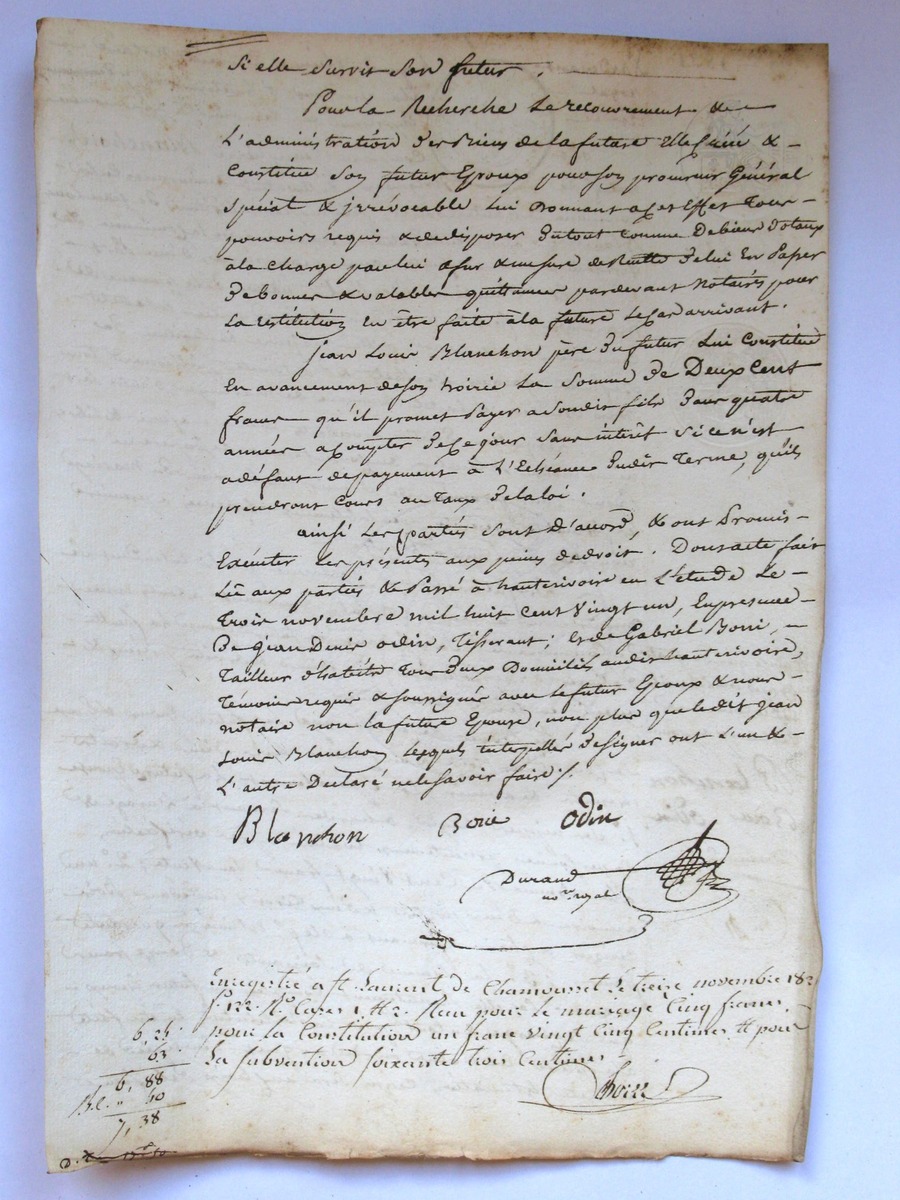 Si elle survit son futur.
Pour la Recherche le recouvrement &
L'administration des Biens de la future elle créé &
Constitue son futur Epoux pour son procureur Général
Spécial & irrévocable lui Donnant a cet Effet Tous
pouvoirs requis & de disposer du tout comme De biens Dotaux
à la charge par lui a fur & mesure de Recette d'elui En Passer
De bonnes & valables quittances pardevant Notaires pour
La restitution En être faite à la future le cas arrivant.
Jean Louis Blanchon père du futur Lui Constitue
En avancement de son hoirie La Somme de Deux Cent
francs qu'il promet Payer a Son dit fils Dans quatre
années a compter De Ce jour Sans intérêt Si ce n'est
a défaut de payement à L'Echéance Dudit Terme, qu'ils
prendront Cours au Taux De la loi.
ainsi Les parties sont D'accord, & ont Promis
Exécuter Les présentes aux peines de droit. Dont acte fait
Lu aux parties & Passé à hauterivoire en L'étude Le
Trois novembre mil huit cent Vingt un, En présence
De jean Denis odin, Tisserant; & de Gabriel Boni,
Tailleur d'habits Tous Deux Domiciliés audit hauterivoire,
Témoins requis & soussignés avec le futur Epoux & nous
notaire non la future Epouse, non plus que le dit jean
Louis Blanchon Lesquels interpellés De signer ont L'un &
L'autre Déclaré ne le savoir faire ./.
Blanchon Odin
Durand
no.re royal
Enregistré a St. Laurent de Chamousset le treize novembre 182
f° 122 R° Cases 1 & 2. Reçu pour le mariage Cinq francs
pour la Constitution un franc Vingt Cinq Centimes & pour
la subvention soixante trois Centimes
6, 25
63
6, 88
" 50
7, 38